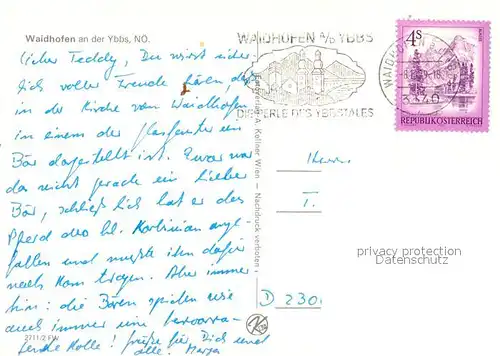 Waidhofen an der Ybbs, NÖ.
Lieber Teddy, Du wirst sicher
dich voller Freude hören, daß
in der Kirche von Waidhofen
in einem der Glasfenster ein
Bär dargestellt ist. Zwar war
das nicht gerade ein lieber
Bär, schließlich hat er des
Pferd des hl. Korbinian ange-
fallen und mußte ihn dafür
nach Rom tragen. Aber immer
hin: die Bären spielen wie
auch immer eine hervorra-
gende Rolle! Grüße für Dich und
alle.
2711/2 FW
WAIDHOFEN A/D YBBS
DIE PERLE DES YBBSTALES
A. Kellner Wien — Nachdruck verboten
WAIDHOFEN
3340
4S
REPUBLIK ÖSTERREICH
Herrn
T.
D 230
privacy protection
Datenschutz